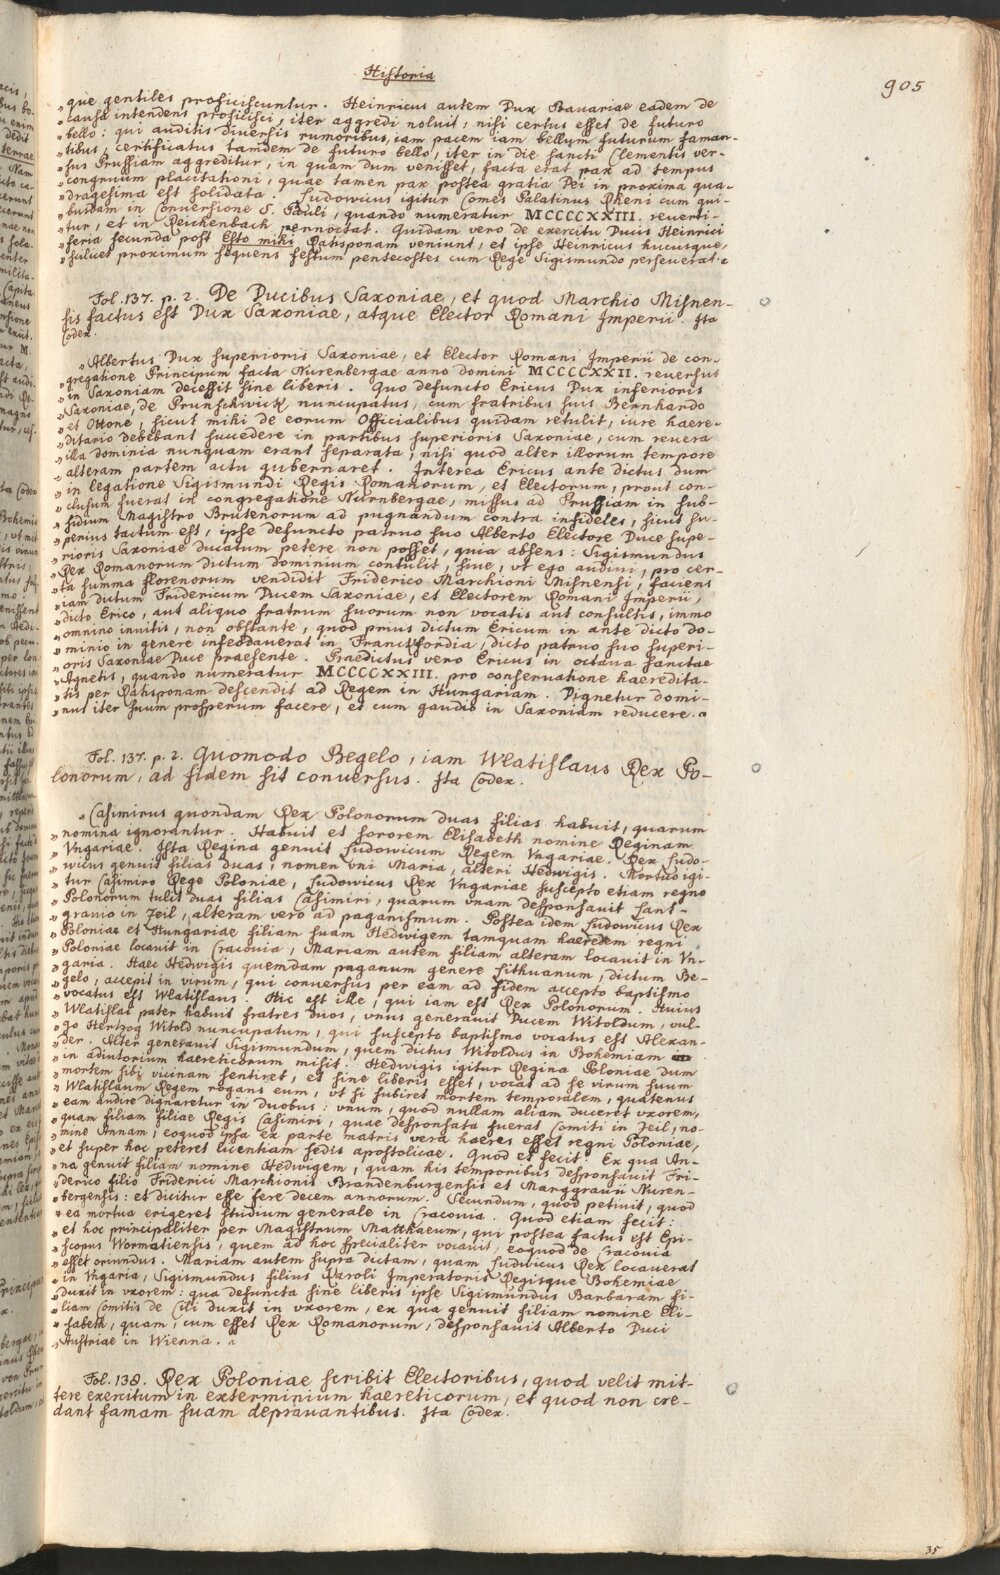 Historia
905
„que gentiles proficiscuntur. Heinricus autem Dux Bavariae eadem de
„causa intendens proficisci, iter aggredi noluit, nisi certus esset de futuro
„bello: qui auditis diversis rumoribus, iam pacem iam bellum futurum faman-
„tibus, certificatus tandem de futuro bello, iter in die sancti Clementis ver-
„sus Prussiam aggreditur, in quam dum venisset, facta erat pax ad tempus
„congruum placitationi, quae tamen pax postea gratia Dei in proxima qua-
„dragesima est solidata. Ludowicus igitur Comes Palatinus Rheni cum qui-
„busdam in Conversione S. Pauli, quando numeratur MCCCCXXIII. reverti-
„tur, et in Reichenbach pernoctat. Quidam vero de exercitu Ducis Heinrici
„feria secunda post Esto mihi Ratisponam veniunt, et ipse Heinricus hucusque,
„scilicet proximum sequens festum pentecostes cum Rege Sigismundo perseverat. «
Fol. 137. p. 2. De Ducibus Saxoniae, et quod Marchio Misnen-
sis factus est Dux Saxoniae, atque Elector Romani Imperii. Ita
Codex.
„Albertus Dux superioris Saxoniae, et Elector Romani Imperii de con-
„gregatione Principum facta Nurenbergae anno domini MCCCCXXII. reversus
„in Saxoniam decessit sine liberis. Quo defuncto Ericus Dux inferioris
„Saxoniae, de Prunschwick nuncupatus, cum fratribus suis Bernhardo
„et Ottone, sicut mihi de eorum Officialibus quidam retulit, iure haere-
„ditario debebant succedere in partibus superioris Saxoniae, cum revera
„illa dominia nunquam erant separata, nisi quod alter illorum tempore
„alteram partem actu gubernaret. Interea Ericus ante dictus dum
„in legatione Sigismundi Regis Romanorum, et Electorum, prout con-
„clusum fuerat in congregatione Nurnbergae, missus ad Prussiam in sub-
„sidium Magistro Brutenorum ad pugnandum contra infideles, sicut su-
„perius tactum est, ipse defuncto patruo suo Alberto Electore Duce supe-
„rioris Saxoniae ducatum petere non posset, quia absens: Sigismundus
„Rex Romanorum dictum dominium contulit, sive, ut ego audivi, pro cer-
„ta summa florenorum vendidit Friderico Marchioni Misnensi, faciens
„iam dictum Fridericum Ducem Saxoniae, et Electorem Romani Imperii,
„dicto Erico, aut aliquo fratrum suorum non vocatis aut consultis, immo
„omnino invitis, non obstante, quod prius dictum Ericum in ante dicto do-
„minio in genere infeodauerat in Franckfordia, dicto patruo suo superi-
„oris Saxoniae Duce praesente. Praedictus vero Ericus in octava sanctae
„Agnetis, quando numeratur MCCCCXXIII. pro conservatione haeredita-
„tis per Ratisponam descendit ad Regem in Hungariam. Dignetur domi-
„nus iter suum prosperum facere, et cum gaudio in Saxoniam reducere. «
Fol. 137. p. 2. Quomodo Begelo, iam Wlatislaus Rex Po-
lonorum, ad fidem sit conversus. Ita Codex.
„Casimirus quondam Rex Polonorum duas filias habuit, quarum
„nomina ignorantur. Habuit et sororem Elisabeth nomine Reginam
„Vngariae. Ista Regina genuit Ludowicum Regem Vngariae. Rex Ludo-
„wicus genuit filias duas, nomen uni Maria, alteri Hedwigis. Mortuo igi-
„tur Casimiro Rege Poloniae, Ludowicus Rex Vngariae suscepto etiam regno
„Polonorum tulit duas filias Casimiri, quarum unam desponsavit Lant-
„gravio in Zeil, alteram vero ad paganismum. Postea idem Ludowicus Rex
„Poloniae et Hungariae filiam suam Hedwigem tamquam haeredem regni
„Poloniae locavit in Craconia, Mariam autem filiam alteram locavit in Vn-
„garia. Haec Hedwigis quemdam paganum genere Lithuanum, dictum Be-
„gelo, accepit in virum, qui conversus per eam ad fidem accepto baptismo
„vocatus est Wlatislaus. Hic est ille, qui iam est Rex Polonorum. Huius
„Wlatislai pater habuit fratres duos, unus generavit Ducem Witoldum, vul-
„go Hertzog Witold nuncupatum, qui suscepto baptismo vocatus est Alexan-
„der. Alter generavit Sigismundum, quem dictus Witoldus in Bohemiam
„in adiutorium haereticorum misit. Hedwigis igitur Regina Poloniae dum
„mortem sibi vicinam sentiret, et sine liberis esset, vocat ad se virum suum
„Wlatislaum Regem rogans eum, ut si subiret mortem temporalem, quatenus
„eam audire dignaretur in duobus: unum, quod nullam aliam duceret uxorem,
„quam filiam filiae Regis Casimiri, quae desponsata fuerat Comiti in Zeil, no-
„mine Annam, eoquod ipsa ex parte matris vera haeres esset regni Poloniae,
„et super hoc peteret licentiam sedis apostolicae. Quod et fecit. Ex qua An-
„na genuit filiam nomine Hedwigem, quam his temporibus desponsavit Fri-
„derico filio Friderici Marchionis Brandenburgensis et Marggravii Nuren-
„bergensis: et dicitur esse fere decem annorum. Secundum, quod petiuit, quod
„ea mortua erigeret studium generale in Craconia. Quod etiam fecit:
„et hoc principaliter per Magistrum Matthaeum, qui postea factus est Epi-
„scopus Wormatiensis, quem ad hoc specialiter vocavit, eoquod de Craconia
„esset oriundus. Mariam autem supra dictam, quam Ludwicus Rex locaverat
„in Vngaria, Sigismundus filius Karoli Imperatoris Regisque Bohemiae
„duxit in uxorem: qua defuncta sine liberis ipse Sigismundus Barbaram fi-
„liam Comitis de Cili duxit in uxorem, ex qua genuit filiam nomine Eli-
„sabeth, quam, cum esset Rex Romanorum, desponsavit Alberto Duci
„Austriae in Wienna. «
Fol. 138. Rex Poloniae scribit Electoribus, quod velit mit-
tere exercitum in exterminium haereticorum, et quod non cre-
dant famam suam depravantibus. Ita Codex.
35